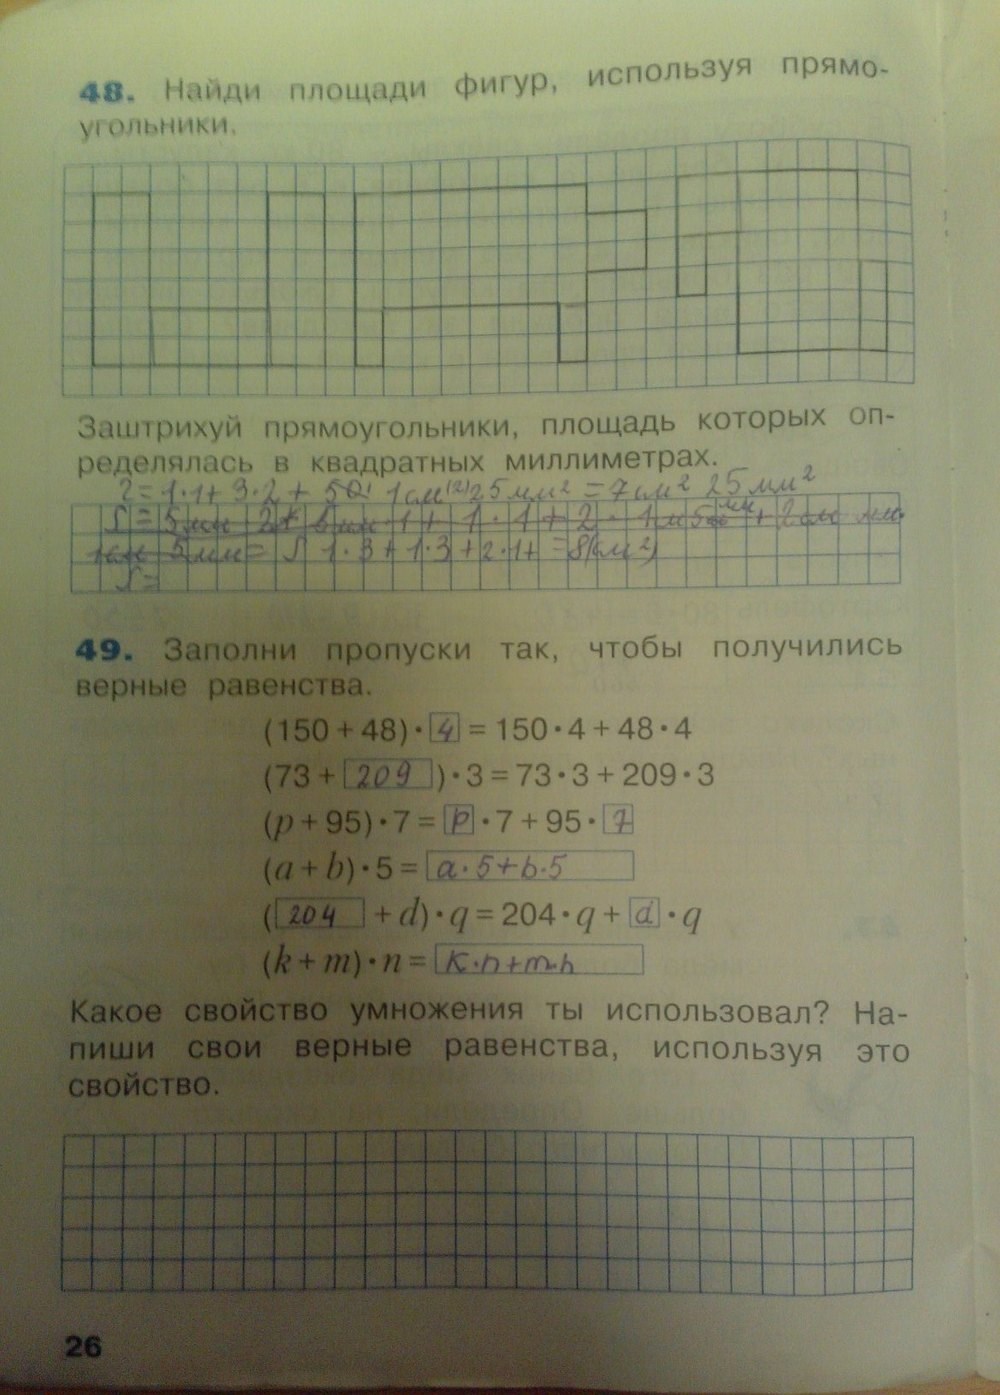 48. Найди площади фигур, используя прямо-
угольники.
Заштрихуй прямоугольники, площадь которых оп-
ределялась в квадратных миллиметрах.
= 1·1+ 3·2 + 25 мм² = 7 см² 25 мм²
S = 5 мм 1 + 1·1 + 2 · + 2 см
5 мм = S 1·3 + 1·3 + 2·1+ = 8(см²)
S =
49. Заполни пропуски так, чтобы получились
верные равенства.
(150 + 48) · 4 = 150 · 4 + 48 · 4
(73 + 209) · 3 = 73 · 3 + 209 · 3
(p + 95) · 7 = p · 7 + 95 · 7
(a + b) · 5 = a · 5 + b · 5
(204 + d) · q = 204 · q + d · q
(k + m) · n = k · n + m · n
Какое свойство умножения ты использовал? На-
пиши свои верные равенства, используя это
свойство.
26